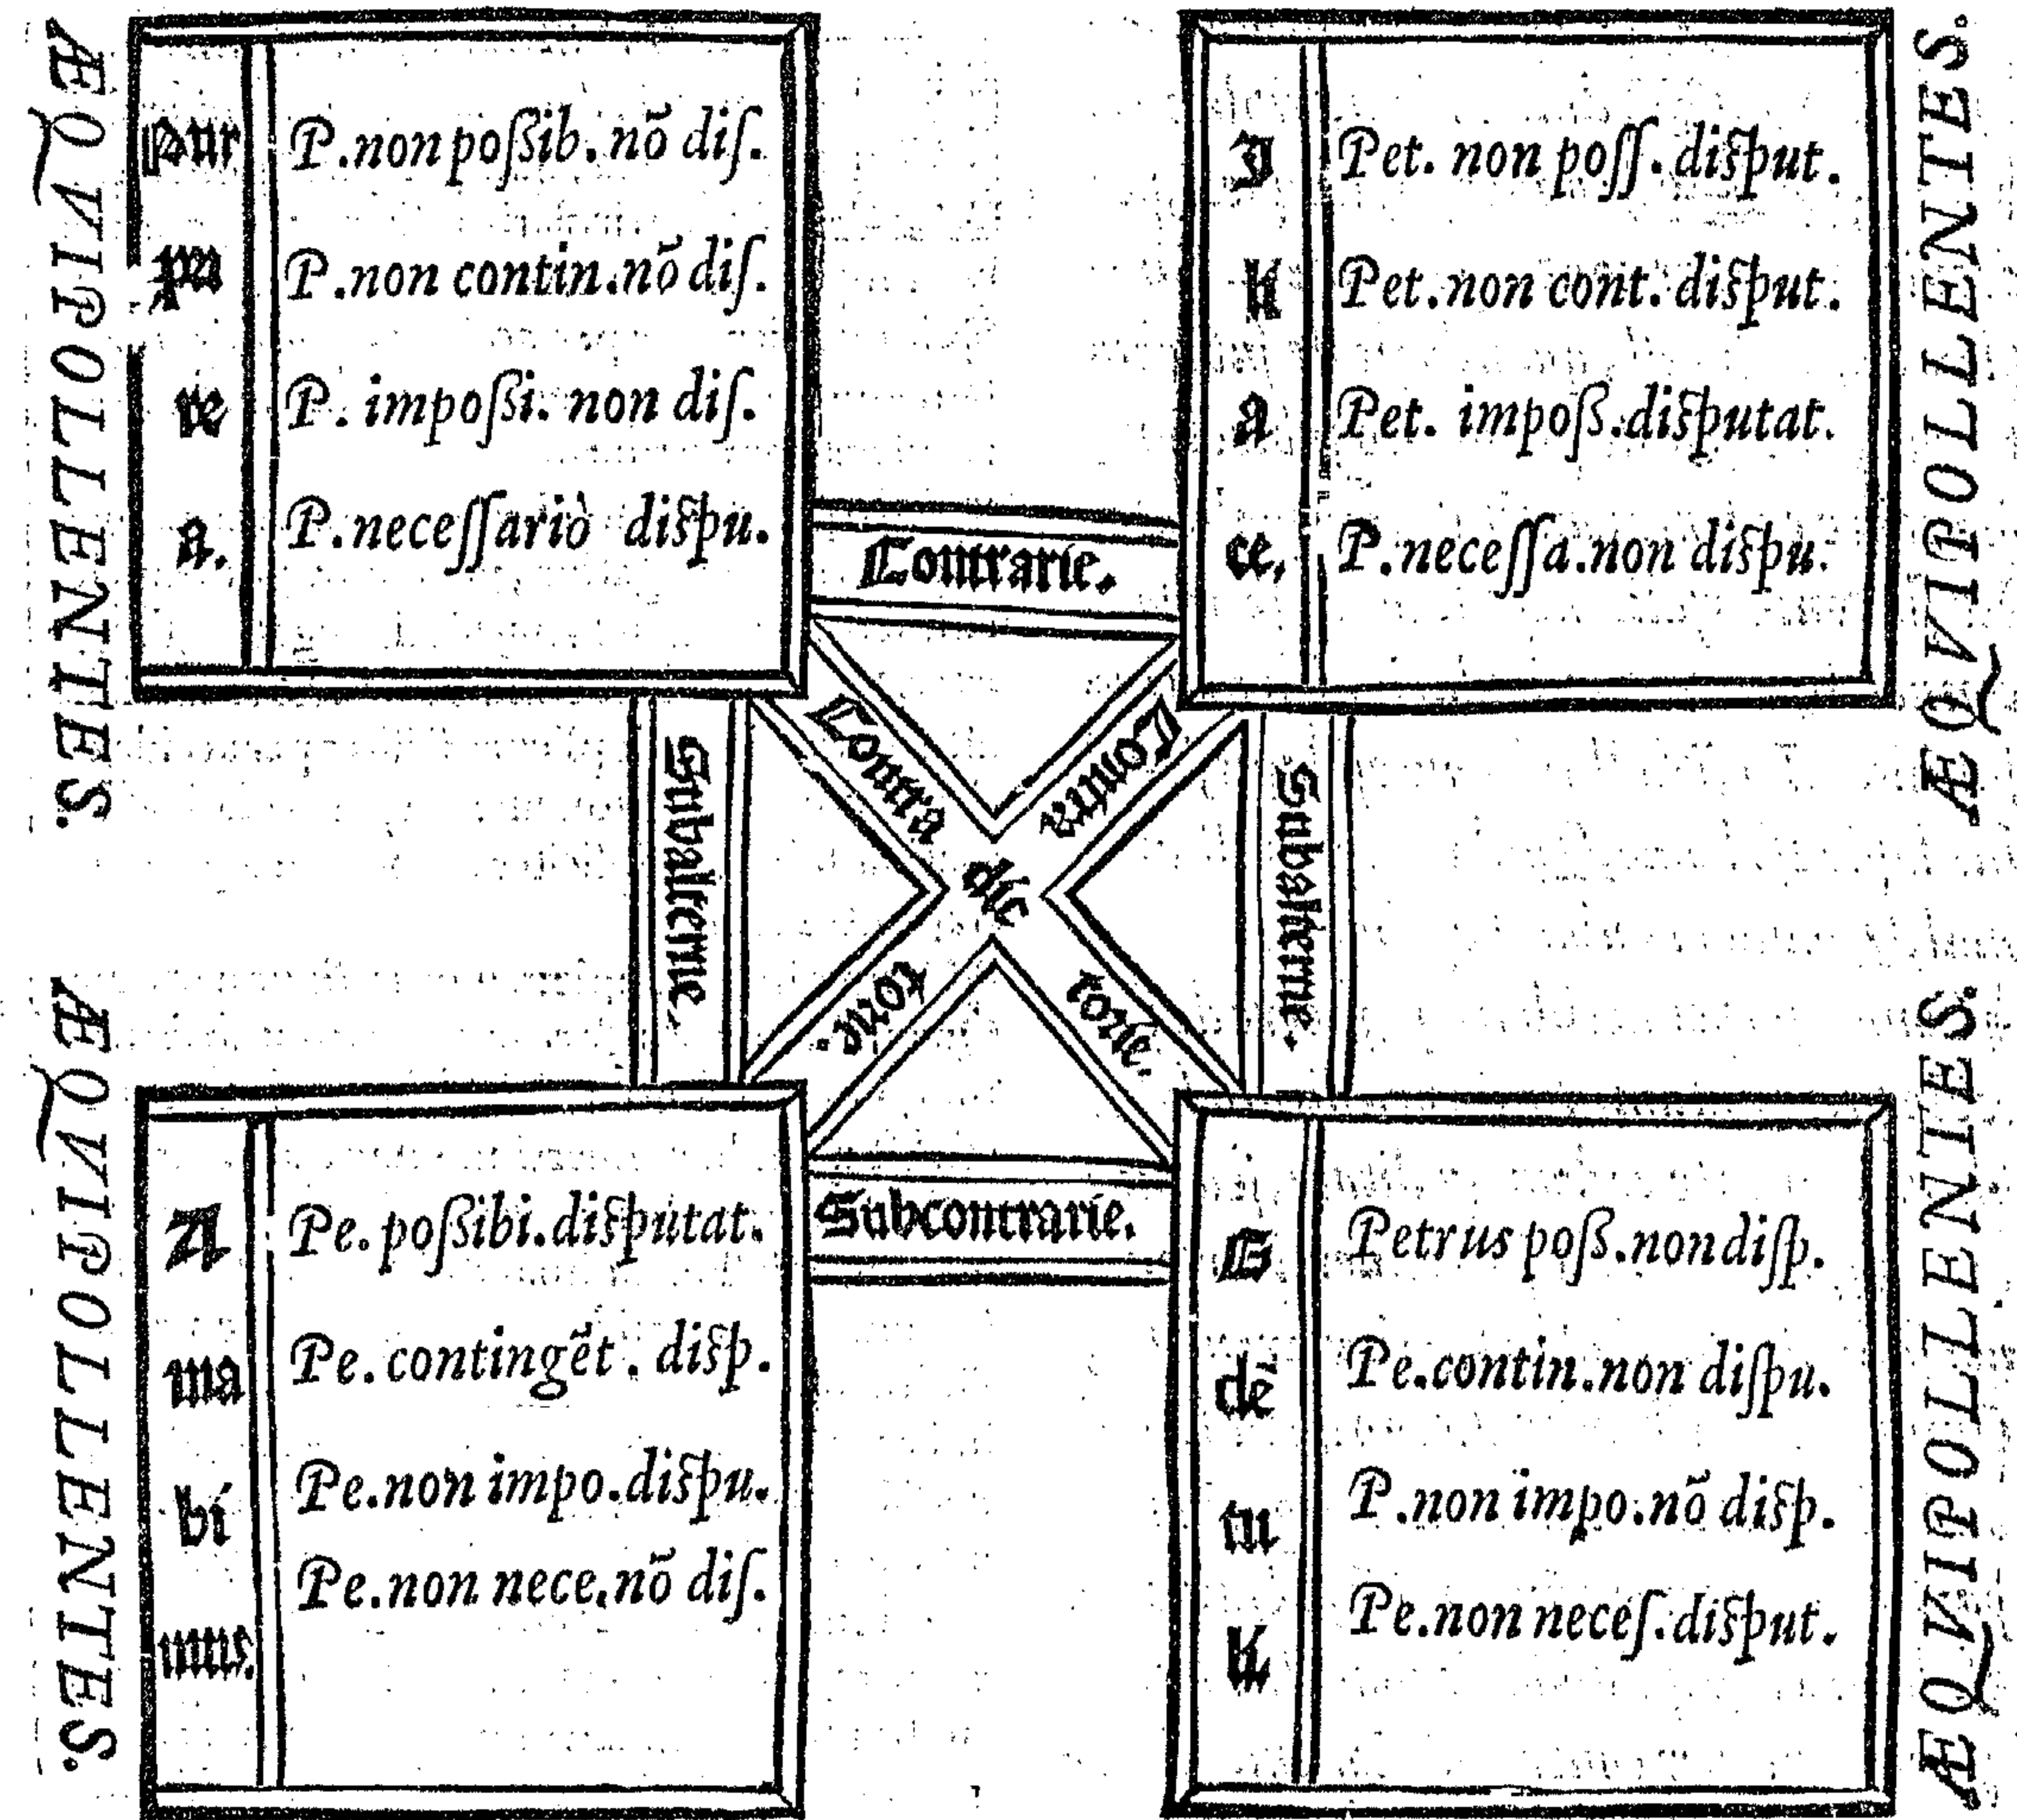 ÆQVIPOLLENTES.
Pur P.non poſsib. nõ diſ.
pu P.non contin.nõ diſ.
re P. impoſsi. non diſ.
a. P.neceſſariò diſpu.
I Pet. non poſſ. diſput.
li Pet.non cont. diſput.
a Pet. impoſs.diſputat.
ce. P.neceſſa.non diſpu.
ÆQVIPOLLENTES.
Contrarie.
Subalterne.
Contra dic torie.
Contra torie.
Subalterne.
ÆQVIPOLLENTES.
A Pe. poſsibi.diſputat.
ma Pe. contingẽt. diſp.
bi Pe.non impo.diſpu.
mus. Pe.non nece.nõ diſ.
Subcontrarie.
E Petrus poſs.non diſp.
dẽ Pe.contin.non diſpu.
tu P.non impo.nõ diſp.
li Pe.non neceſ.diſput.
ÆQVIPOLLENTES.